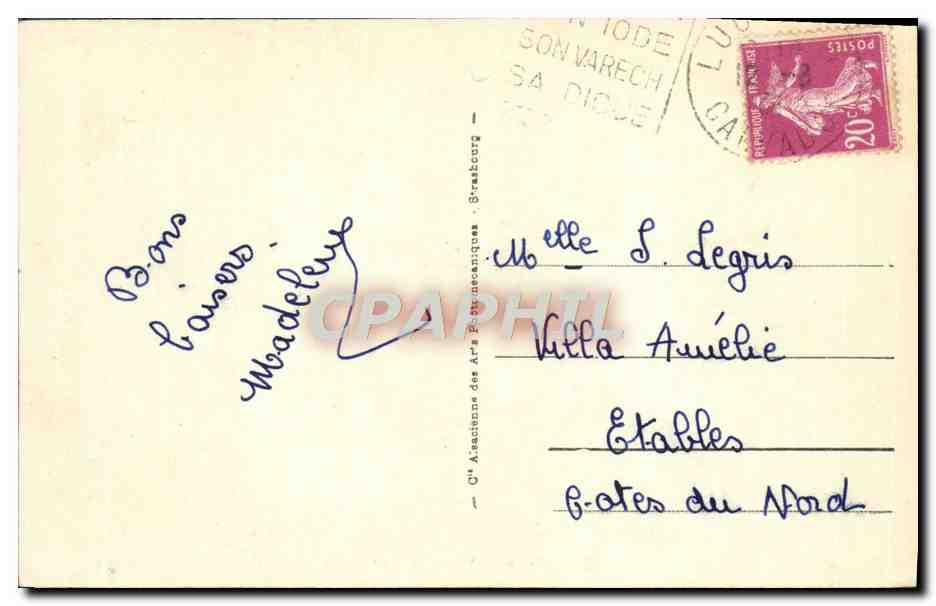 N IODE
SON VARECH
SA DIGUE
LUC
CALVADOS
REPUBLIQUE FRANÇAISE
POSTES
20 c
Bons
baisers.
Madeleine
— Cie Alsacienne des Arts Photomécaniques - Strasbourg —
CPAPHIL
Melle S. Legris
Villa Amélie
Etables
Côtes du Nord